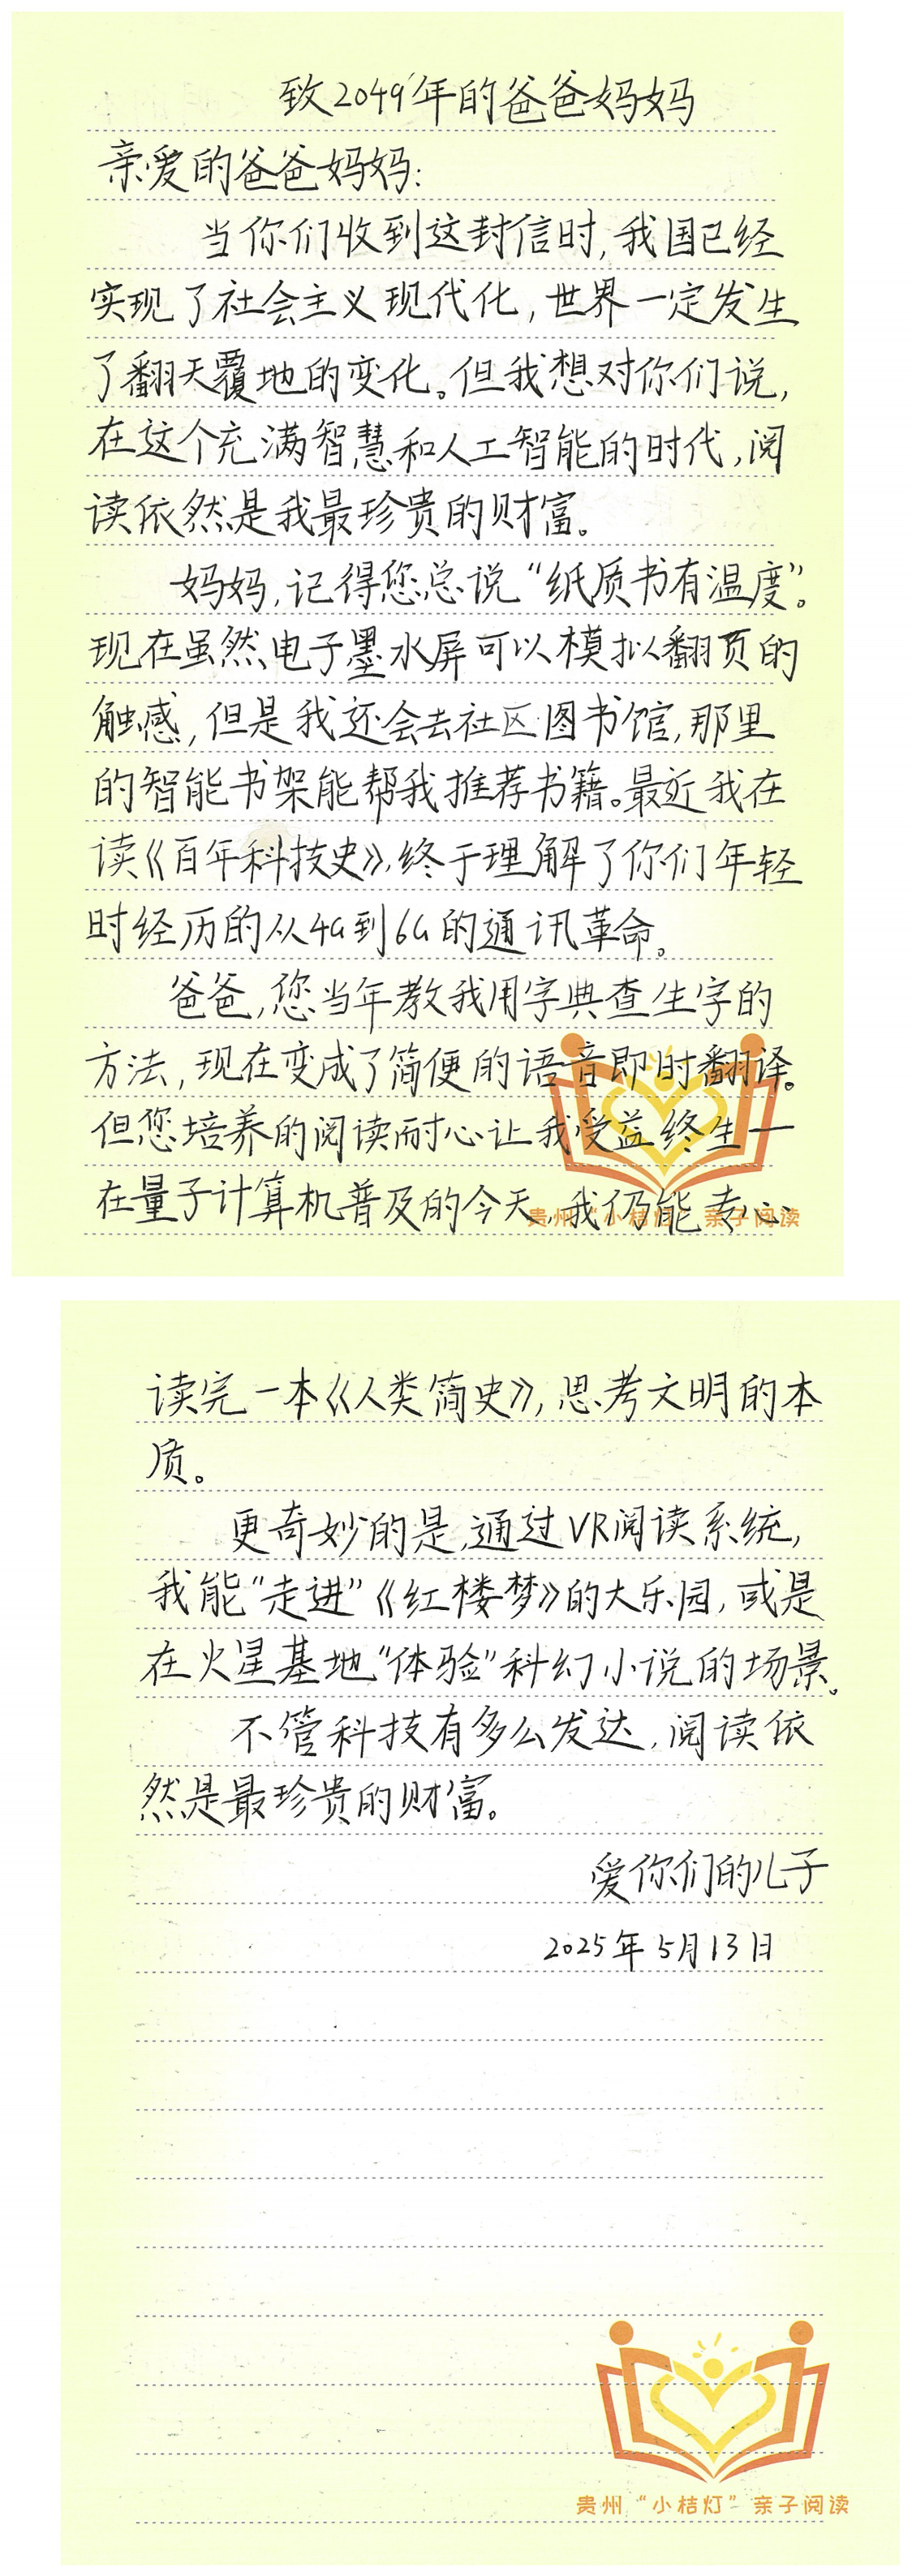 致2049年的爸爸妈妈
亲爱的爸爸妈妈:
当你们收到这封信时,我国已经
实现了社会主义现代化,世界一定发生
了翻天覆地的变化。但我想对你们说,
在这个充满智慧和人工智能的时代,阅
读依然是我最珍贵的财富。
妈妈,记得您总说“纸质书有温度”。
现在虽然电子墨水屏可以模拟翻页的
触感,但是我还会去社区图书馆,那里
的智能书架能帮我推荐书籍。最近我在
读《百年科技史》,终于理解了你们年轻
时经历的从4G到6G的通讯革命。
爸爸,您当年教我用字典查生字的
方法,现在变成了简便的语音即时翻译。
但您培养的阅读耐心让我受益终生一
在量子计算机普及的今天,我仍能专心
贵州“小桔灯”亲子阅读
读完一本《人类简史》,思考文明的本
质。
更奇妙的是,通过VR阅读系统,
我能“走进”《红楼梦》的大乐园,或是
在火星基地“体验”科幻小说的场景。
不管科技有多么发达,阅读依
然是最珍贵的财富。
爱你们的儿子
2025年5月13日
贵州“小桔灯”亲子阅读